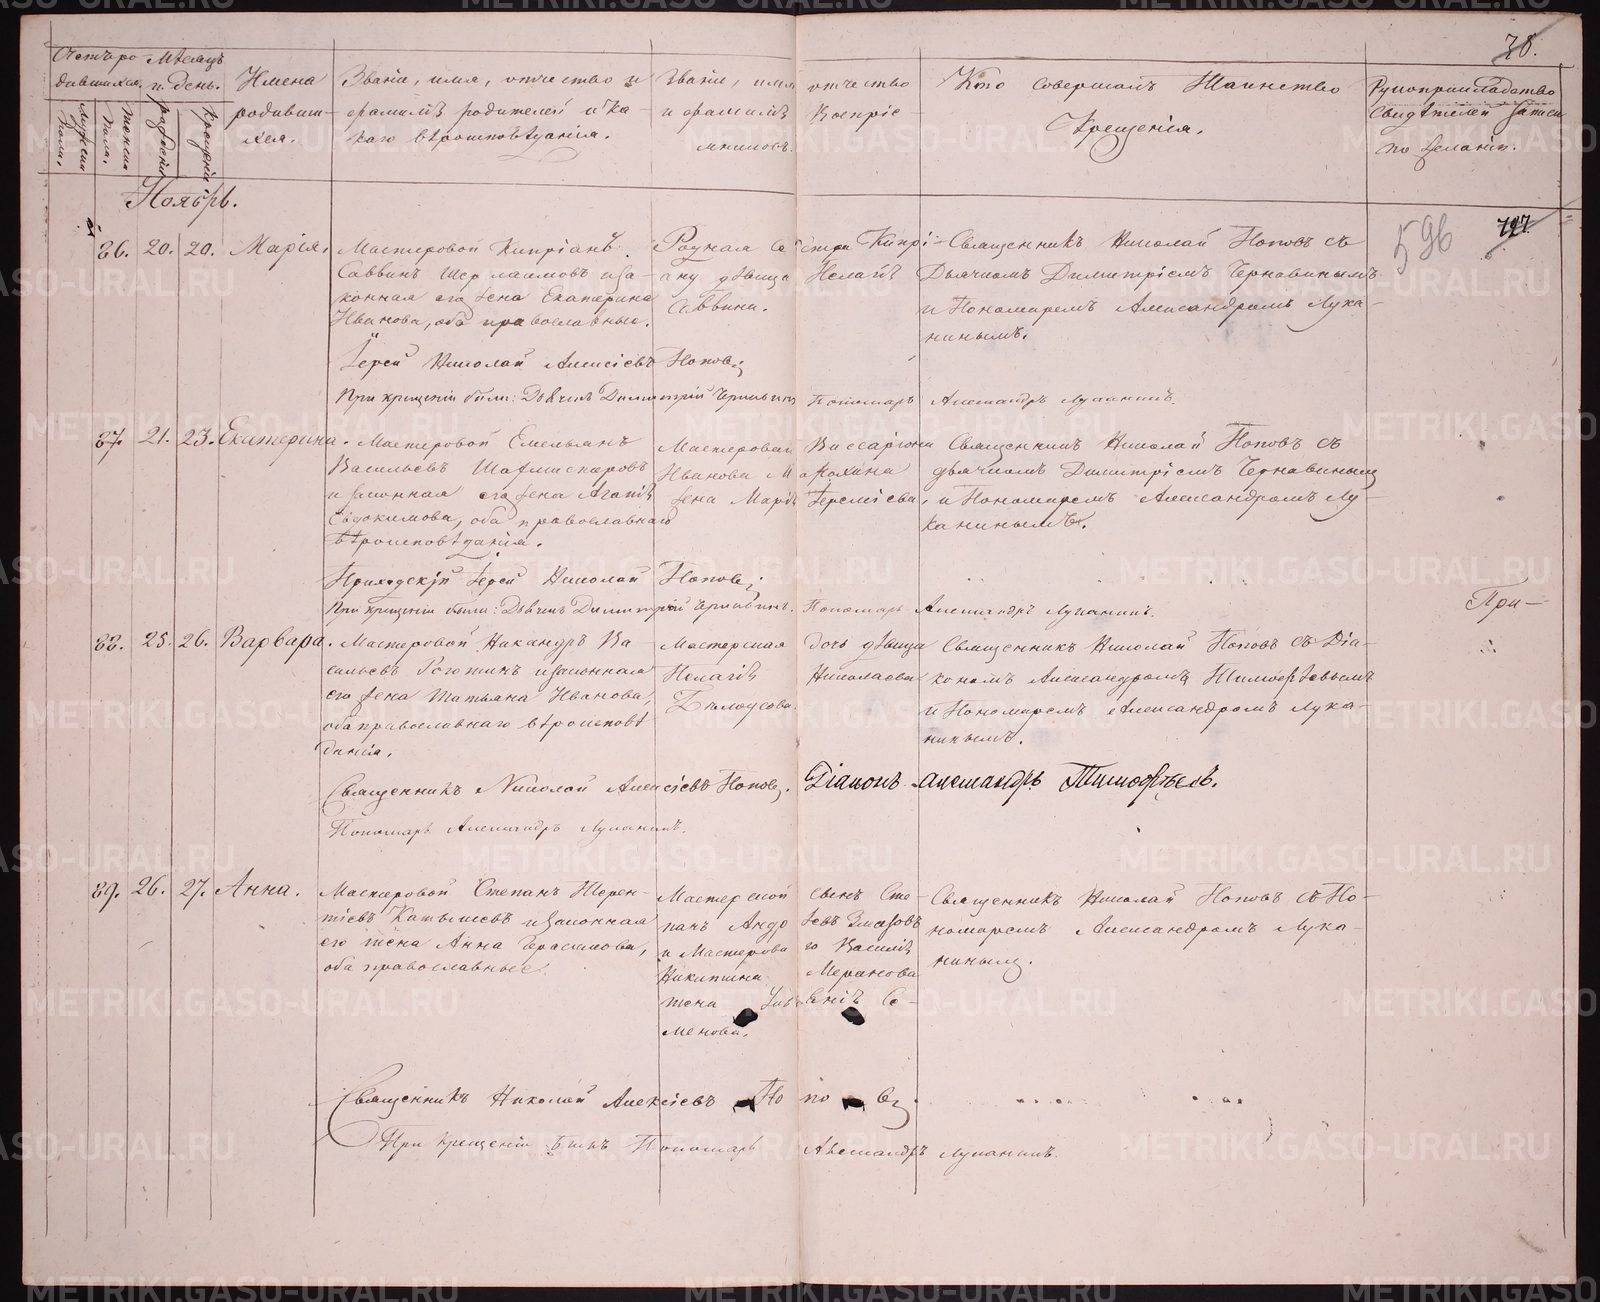 38.
Счетъ ро-
дившихся.
Мѣсяцъ
и день.
Имена
родивш-
хся.
Званіе, имя, отчество и
фамилія родителей и ка-
кого вѣроисповѣданія.
Званіе, имя отчество
и фамилія Воспріе-
мниковъ.
Кто совершалъ Таинство
Крещенія.
Рукоприкладство
свидѣтелей записи
по желанію.
мужеска
пола.
женска
пола.
рожденія
крещенія
Ноябрь.
596
727.
86. 20. 20. Марія.
Мастеровой Кипріанъ
Саввинъ и за-
конная его жена Екатерина
Иванова, оба православные.
Родная сестра Кипрі-
ану дѣвица Пелагія
Саввина.
Священникъ Николай Поповъ съ
Дьячкомъ Димитріемъ Чернавинымъ
и Пономаремъ Александромъ Лука-
нинымъ.
Іерей Николай Алексіевъ Поповъ
При крещеніи были: Дьячекъ Димитрій Чернавинъ Пономарь Александръ Луканинъ.
87. 21. 23. Екатерина.
Мастеровой Емельянъ
Васильевъ
и законная его жена Агапія
Евдокимова, оба православнаго
вѣроисповѣданія.
Мастероваго Виссаріона
Иванова
жена Марія Іереміева.
Священникъ Николай Поповъ съ
дьячкомъ Димитріемъ Чернавинымъ
и Пономаремъ Александромъ Лу-
канинымъ.
Приходскій Іерей Николай Поповъ
При крещеніи были: Дьячекъ Димитрій Чернавинъ. Пономарь Александръ Луканинъ.
При-
88. 25. 26. Варвара.
Мастеровой Никандръ Ва-
сильевъ Рогожинъ и законная
его жена Татьяна Иванова,
оба православнаго вѣроисповѣ
данія.
Мастерская дочь дѣвица
Пелагія Николаева
Бѣлоусова.
Священникъ Николай Поповъ съ Діа-
кономъ Александромъ Тимофѣевымъ
и Пономаремъ Александромъ Лука-
нинымъ.
Священникъ Николай Алексіевъ Поповъ. Діаконъ Александръ Тимофѣевъ.
Пономарь Александръ Луканинъ.
89. 26. 27. Анна.
Мастеровой Степанъ Терен-
тіевъ Катышевъ и законная
его жена Анна Герасимова,
оба православные.
Мастерской сынъ Сте-
панъ
и Мастероваго Василія
Никитина
жена Се-
менова.
Священникъ Николай Поповъ съ По-
номаремъ Александромъ Лука-
нинымъ.
Священникъ Николай Алексіевъ Поповъ.
При крещеніи былъ Пономарь Александръ Луканинъ.
METRIKI.GASO-URAL.RU